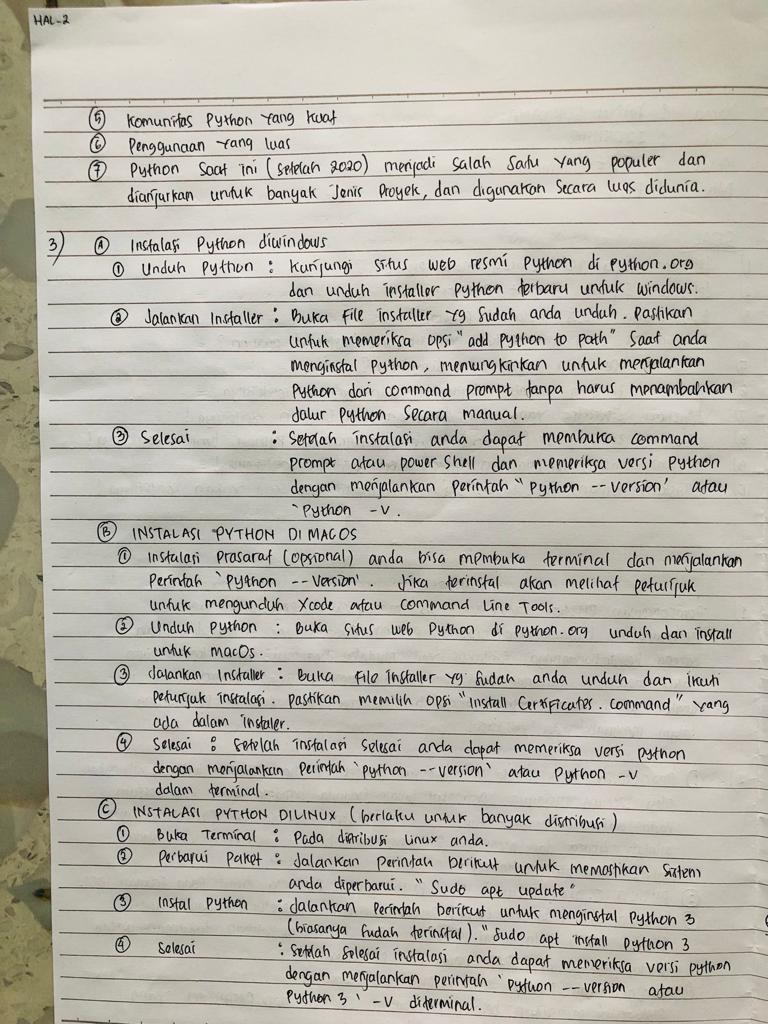 HAL-2
⑤ Komunitas Python yang kuat
⑥ Penggunaan yang luas
⑦ Python Saat ini (setelah 2020) menjadi salah satu yang populer dan
dianjurkan untuk banyak Jenis Proyek, dan digunakan secara luas didunia.
3) Ⓐ Instalasi Python diwindows
① Unduh Python : Kunjungi situs web resmi Python di python.org
dan unduh installer Python terbaru untuk windows.
② Jalankan Installer : Buka file installer yg sudah anda unduh. Pastikan
untuk memeriksa opsi "add Python to path" saat anda
menginstal Python, memungkinkan untuk menjalankan
Python dari command prompt tanpa harus menambahkan
Jalur Python secara manual.
③ Selesai : Setelah instalasi anda dapat membuka command
prompt atau power shell dan memeriksa versi Python
dengan menjalankan perintah "Python --version' atau
'Python -V.
Ⓑ INSTALASI PYTHON DI MACOS
① Instalasi Prasarat (opsional) anda bisa membuka terminal dan menjalankan
Perintah 'Python --version'. Jika terinstal akan melihat petunjuk
untuk mengunduh Xcode atau Command Line Tools.
② Unduh Python : Buka situs web Python di python.org unduh dan install
untuk macOs.
③ Jalankan Installer : Buka file installer yg sudah anda unduh dan ikuti
petunjuk instalasi. pastikan memilih opsi "Install Certificates.command" yang
ada dalam instaler.
④ Selesai : Setelah instalasi selesai anda dapat memeriksa versi python
dengan menjalankan perintah 'python --version' atau Python -V
dalam terminal.
Ⓒ INSTALASI PYTHON DILINUX (berlaku untuk banyak distribusi)
① Buka Terminal : Pada distribusi Linux anda.
② Perbarui Paket : Jalankan perintah berikut untuk memastikan sistem
anda diperbarui. "Sudo apt update"
③ Instal Python : Jalankan perintah berikut untuk menginstal Python 3
(biasanya sudah terinstal). "Sudo apt install Python 3
④ Selesai : Setelah selesai instalasi anda dapat memeriksa versi python
dengan menjalankan perintah 'python --version atau
Python 3 ' -V diterminal.